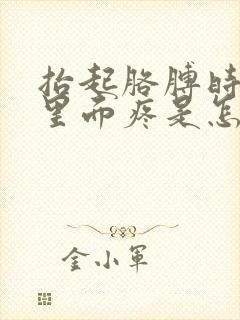 抬起胳膊时
里面疼是怎
金小军